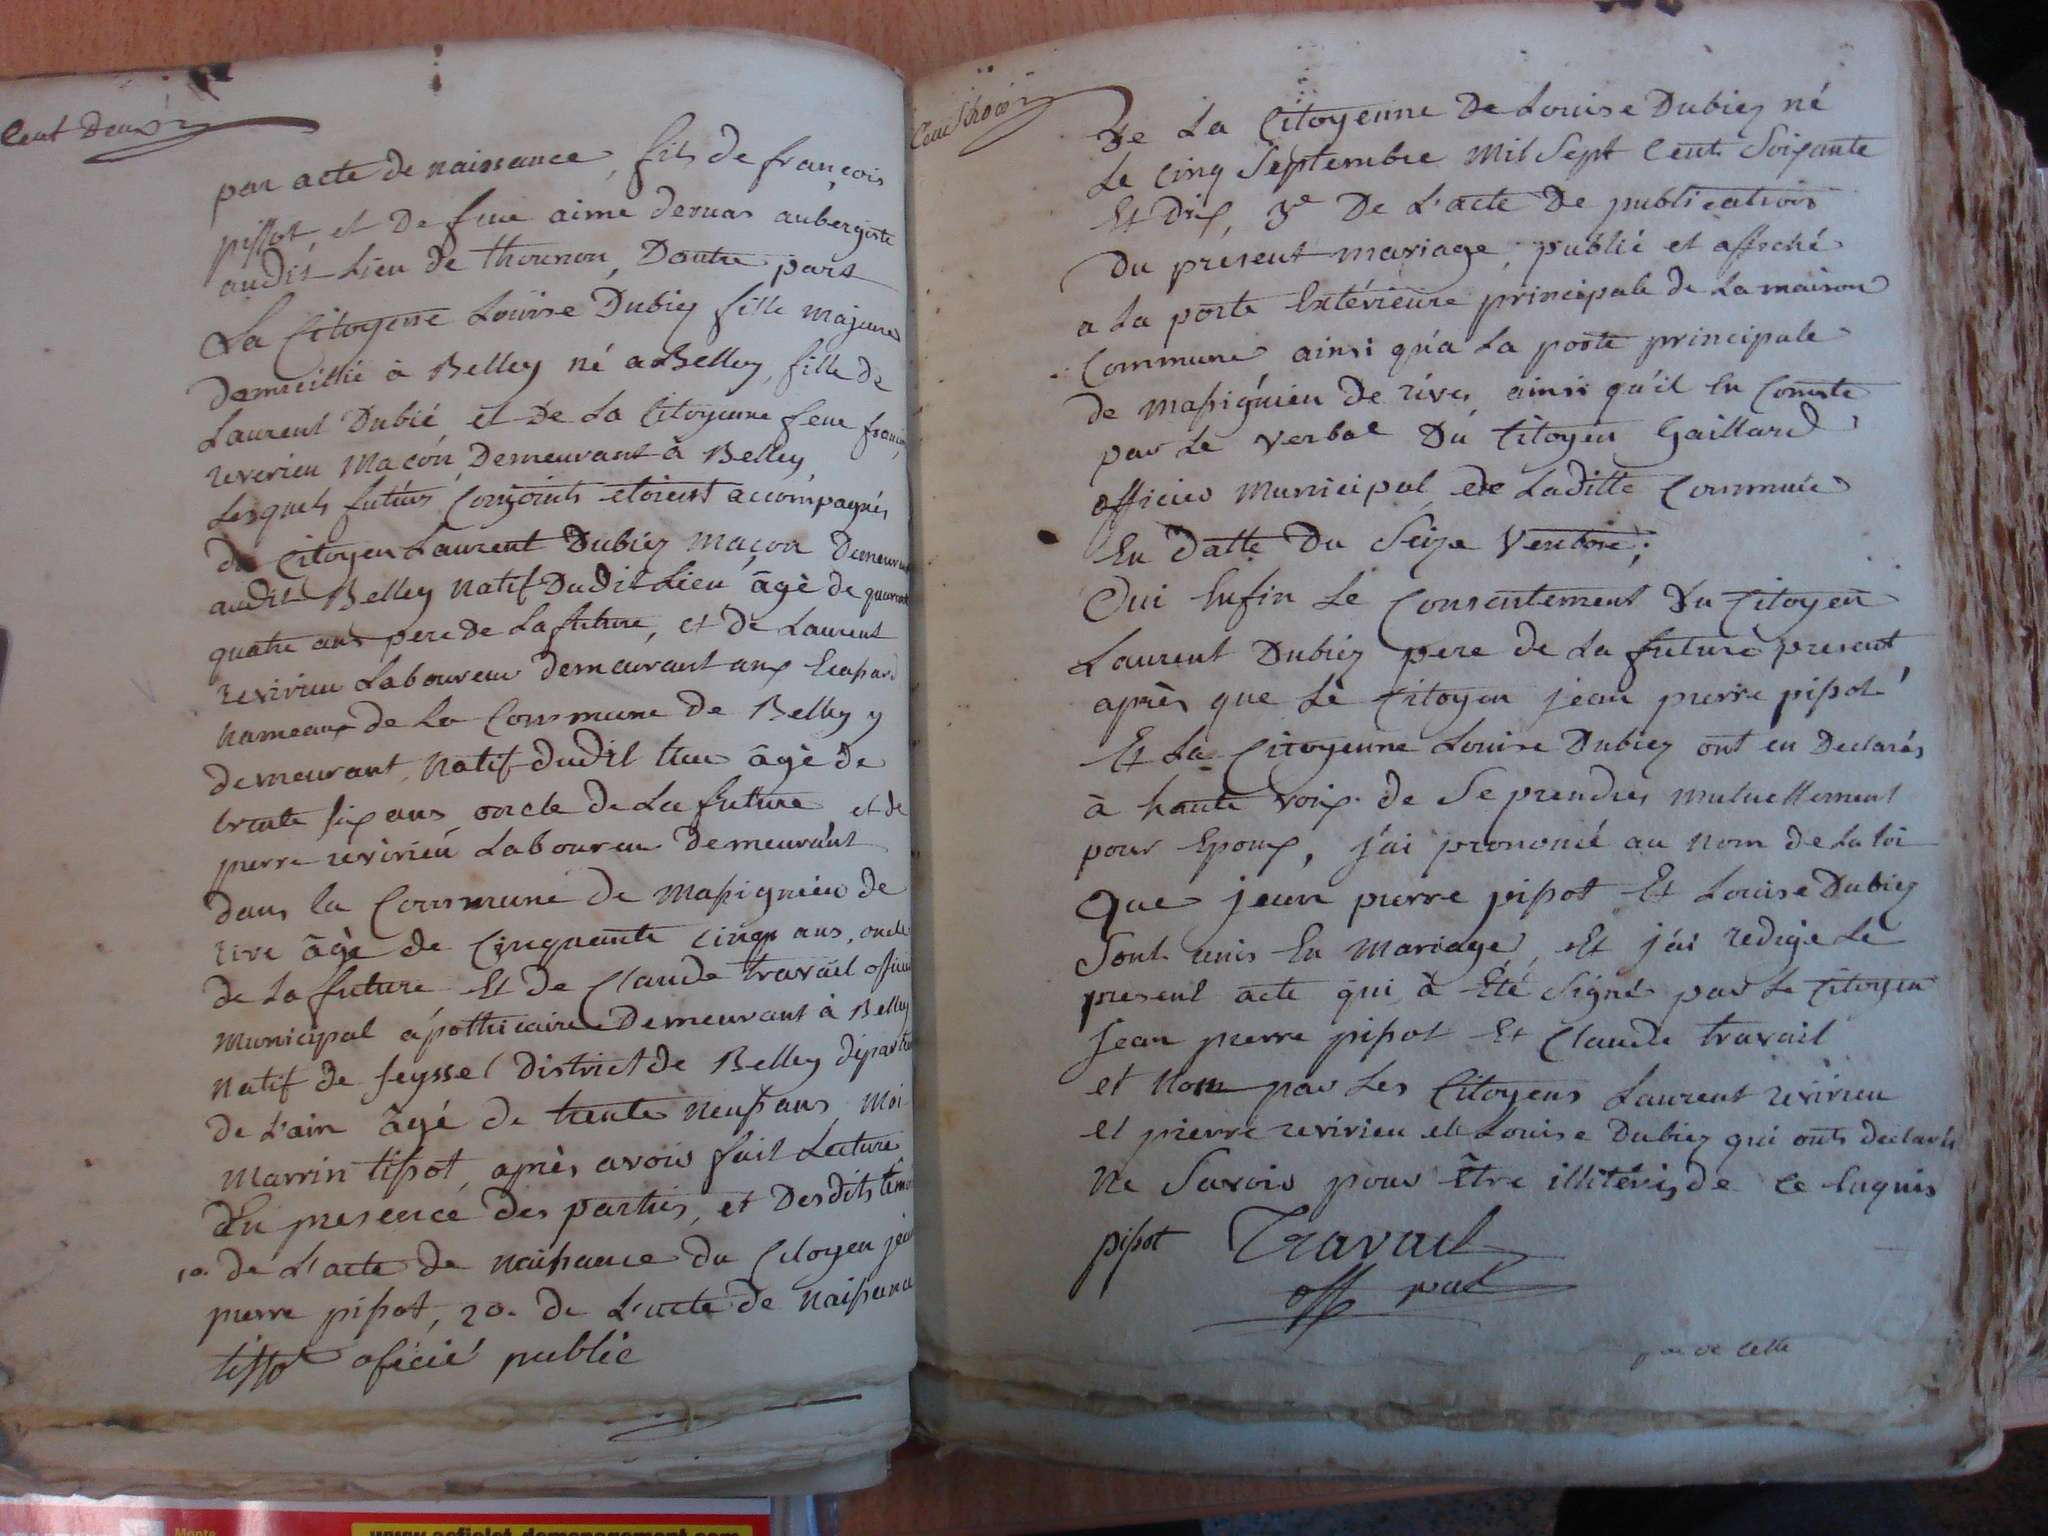 Cent Deux
par acte de naissance, fils de françois
pissot, et de feue aime dernas aubergiste
audit Lieu de thournon, Doutre part
La Citoyene Louise Dubiez fille majeure
domicilie à Belley né a Belley, fille de
Laurent Dubié et De La Citoyenne feue
revirieu Maçon Demeurant à Belley
Lesquels futurs Conjoints etoient accompagnés
du Citoyen Laurent Dubiez Maçon Demeurant
audit Belley Natif Dudit Lieu âgè de
quatre ans pere de La future, et de Laurent
revirieu Laboureur demeurant aux
hameaux de La Commune de Belley y
demeurant, Natif dudit lieu âgè de
trente six ans oncle de La future et de
pierre revirieu Laboureur demeurant
dans la Commune de Massignieu de
rive âgè de Cinquante cinq ans, oncle
de La future Et de Claude travail officier
Municipal apothicaire Demeurant à Belley
Natif de seyssel District de Belley départem
de L'ain âgé de trente neuf ans Moi
Marrin tissot, après avoir fait Lecture
En presence des parties, et Desdits témoi
1o. de L'acte de Naissance du Citoyen jean
pierre pissot, 2o. de L'acte de Naissance
tissot oficié public
Cent trois
De La Citoyenne De Louise Dubiez né
Le cinq Septembre Mil Sept Cent Soixante
Et Dix, 3e De L'acte De publication
Du présent mariage, publié et affiché
a La porte Extérieure principale de La maison
Commune ainsi qu'a La porte principale
de Massignieu De rives ainsi qu'il En Conste
par Le Verbal Du Citoyen Gaillard
officier Municipal de Laditte Commune
En Datte Du Seize Ventose;
Oui Enfin Le Consentement Du Citoyen
Laurent Dubiez pere de La future present,
après que Le Citoyen jean pierre pissot
Et La Citoyenne Louise Dubiez ont eu Declarés
à haute voix de Se prendres mutuellement
pour Epoux, j'ai prononcé au Nom de La loi
Que jean pierre pissot Et Louise Dubiez
Sont unis En Mariage, Et j'ai redigé Le
present acte qui à Eté Signé par Le Citoyen
Jean pierre pissot Et Claude travail
et Nom par Les Citoyens Laurent revirieu
et pierre revirieu et Louise Dubiez qui onts declarés
Ne Savoir pour être illitérés de ce Enquis
pissot Travail
off pal